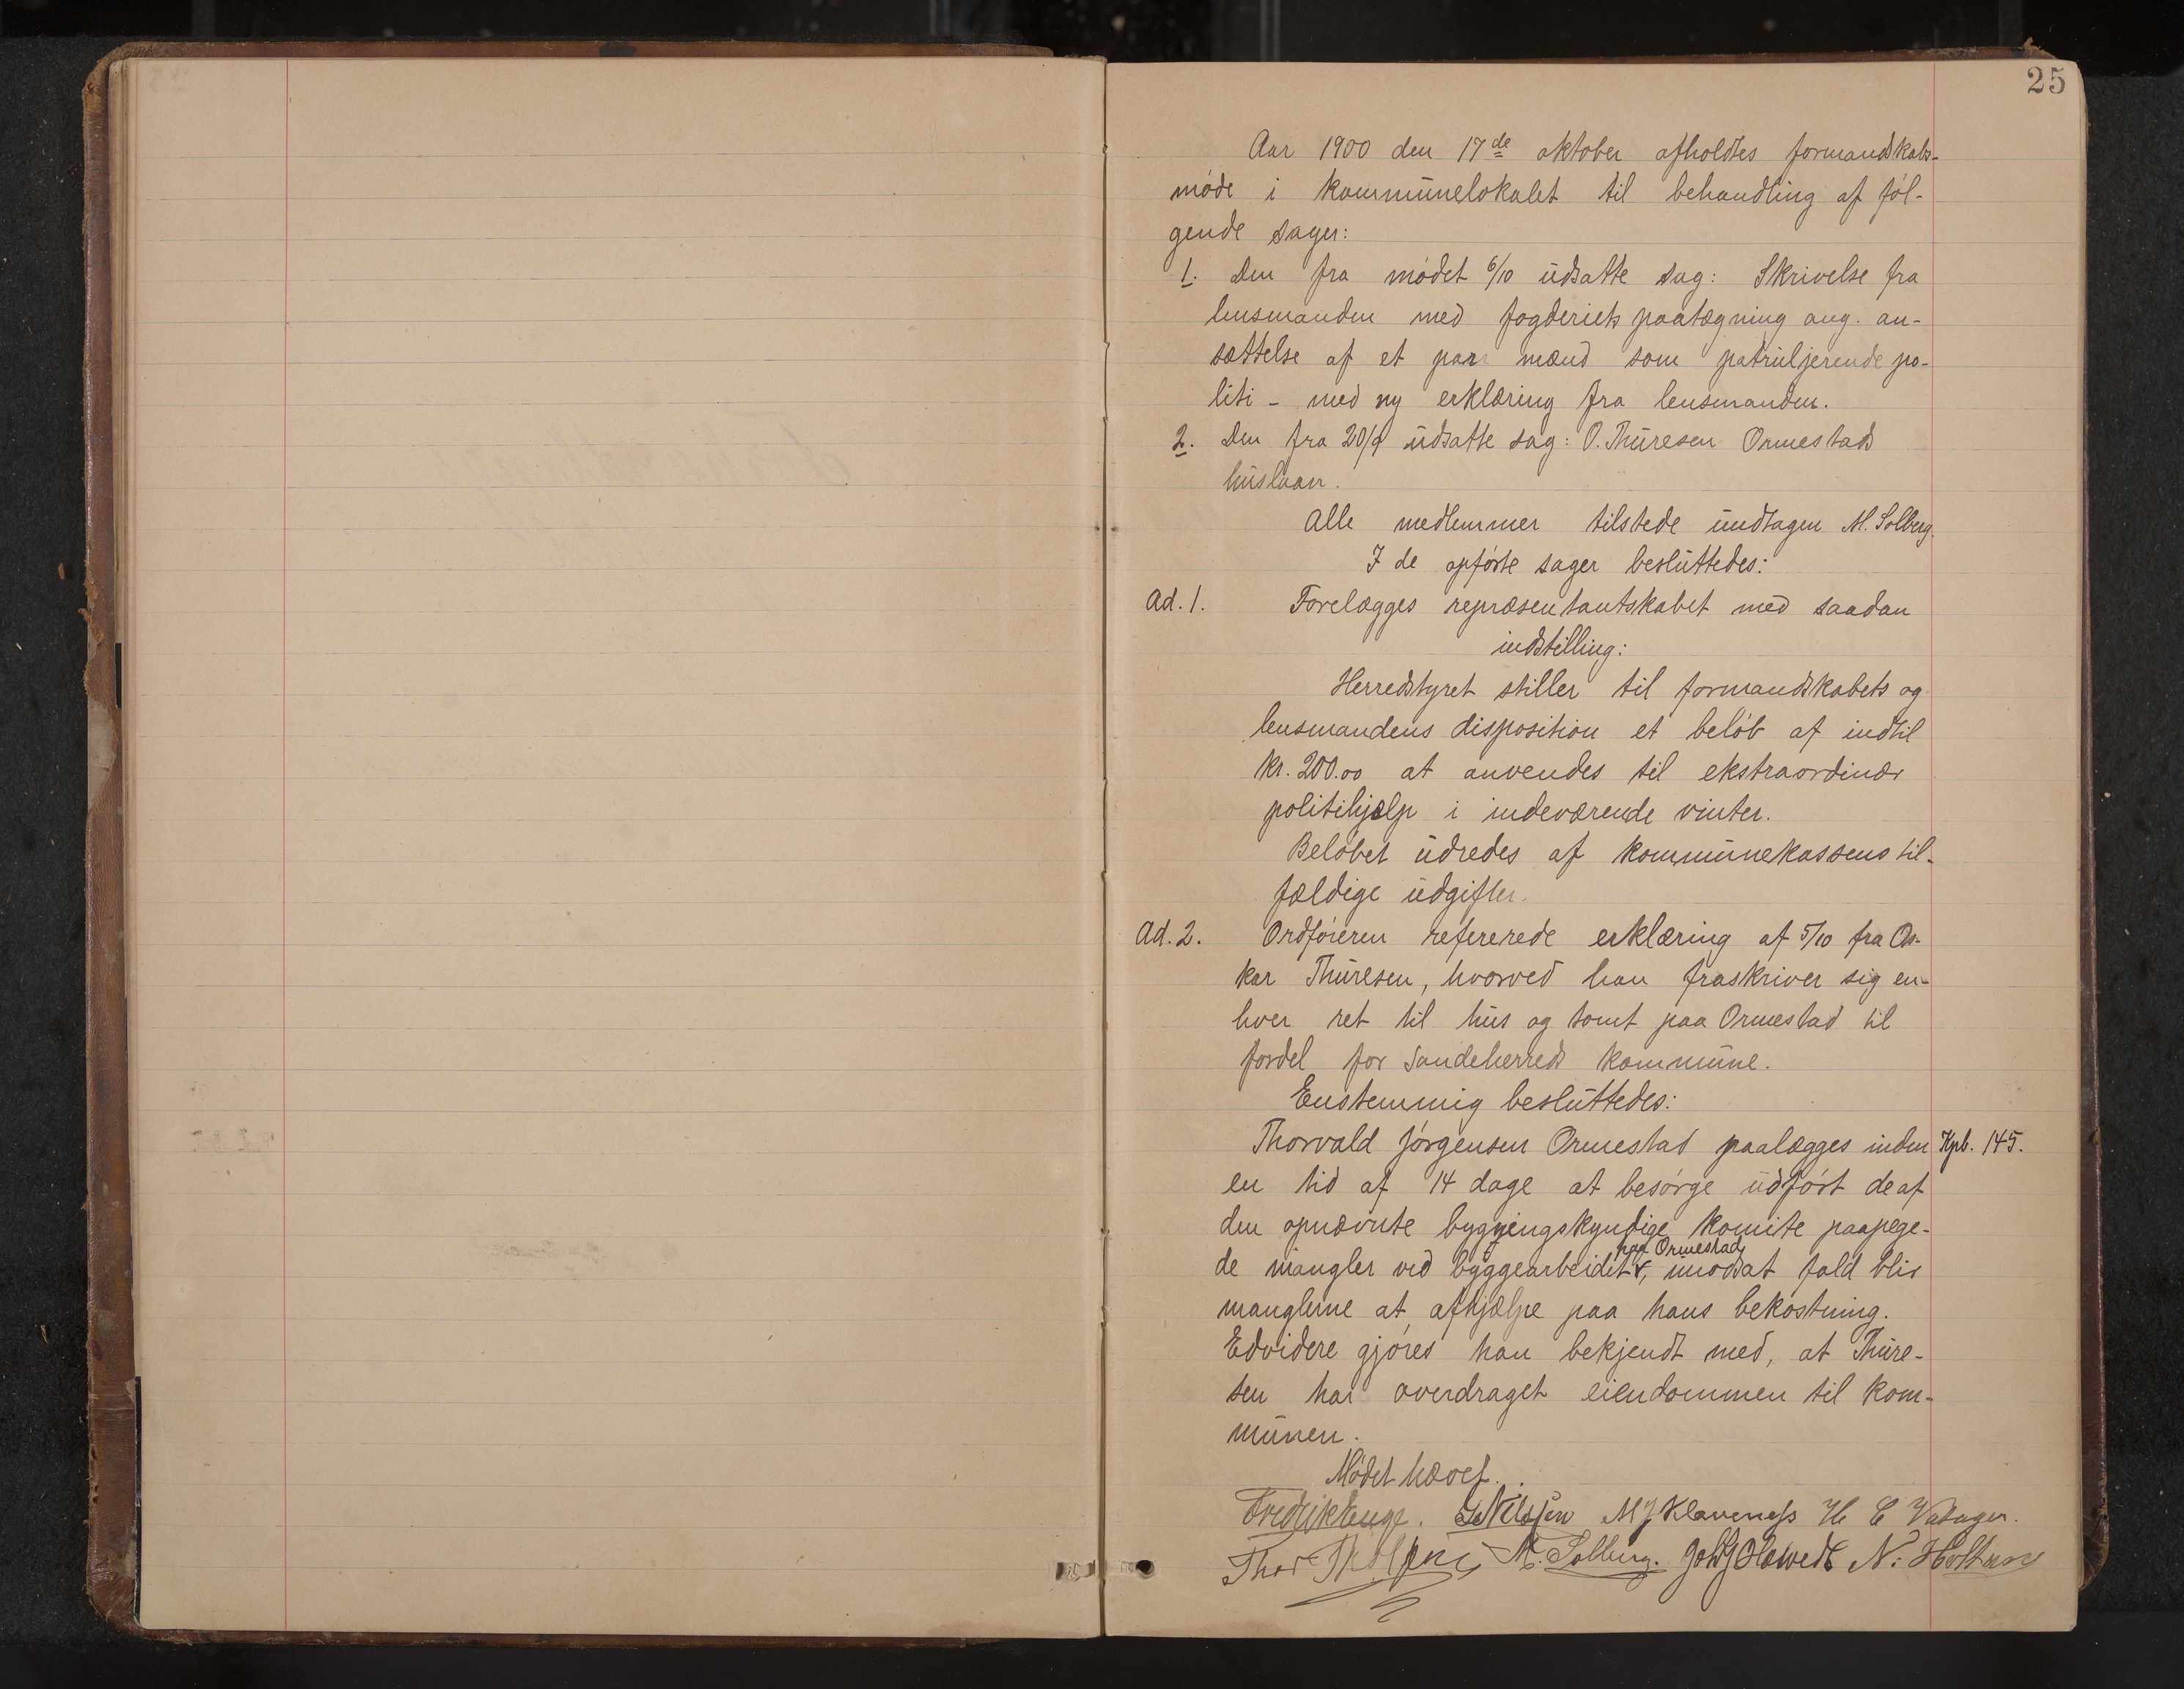 25
Aar 1900 den 17de oktober afholdtes formandskabs-
møde i kommunelokalet til behandling af føl-
gende sager:
1. Den fra mødet 6/10 udsatte sag: Skrivelse fra
lensmanden med fogderiets paategning ang. an-
sættelse af et par mænd som patruljerende po-
liti - med ny erklæring fra lensmanden.
2. Den fra 20/9 udsatte sag: O. Thuresen Ormestads
huslaan.
Alle medlemmer tilstede undtagen M. Solberg.
I de opførte sager besluttedes:
Ad. 1. Forelægges repræsentantskabet med saadan
indstilling:
Herredstyret stiller til formandskabets og
lensmandens disposition et beløb af indtil
kr. 200.00 at anvendes til ekstraordinær
politihjælp i indeværende vinter.
Beløbet udredes af kommunekassens til-
fældige udgifter.
Ad. 2. Ordføreren refererede erklæring af 5/10 fra Os-
kar Thuresen, hvorved han fraskriver sig en-
hver ret til hus og tomt paa Ormestad til
fordel for Sandeherreds kommune.
Enstemmig besluttedes:
Thorvald Jørgensen Ormestad paalægges inden Kpb. 145.
en tid af 14 dage at besørge udført de af
den opnævnte bygningskyndige komite paapege-
paa Ormestad
de mangler ved byggearbeidet, imodsat fald blir
manglerne at afhjælpe paa hans bekostning.
Edvidere gjøres han bekjendt med, at Thure-
sen har overdraget eiendommen til kom-
munen.
Mødet hævet.
Fredrik Enge. Nilssen M J Klaveness H C
Thor M. Solberg. N. Holtan